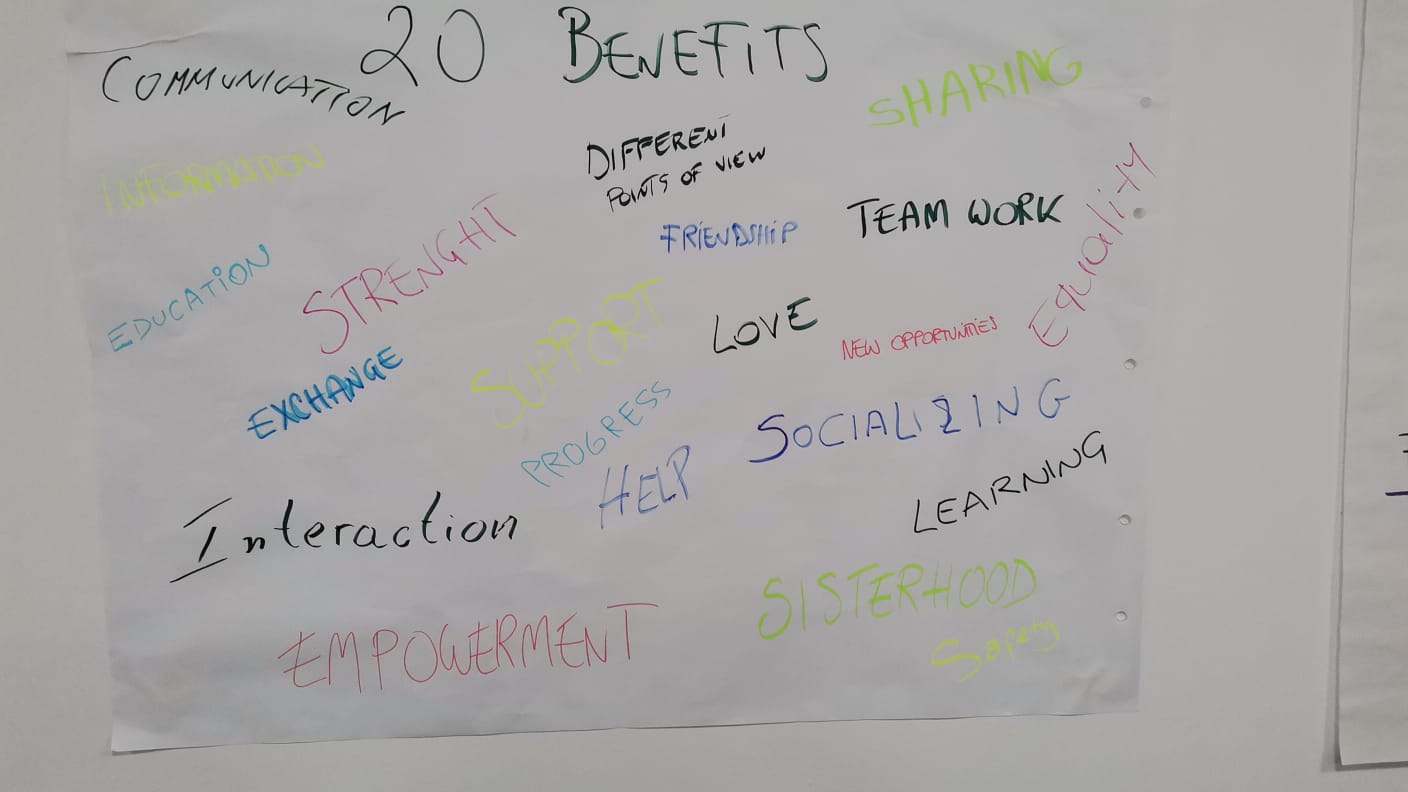 20 BENEFITS
COMMUNICATION
SHARING
INFORMATION
DIFFERENT
POINTS OF VIEW
STRENGHT
FRIENDSHIP
TEAM WORK
EQUALITY
EDUCATION
SUPPORT
LOVE
NEW OPPORTUNITIES
EXCHANGE
PROGRESS
HELP
SOCIALIZING
LEARNING
Interaction
SISTERHOOD
EMPOWERMENT
Safety